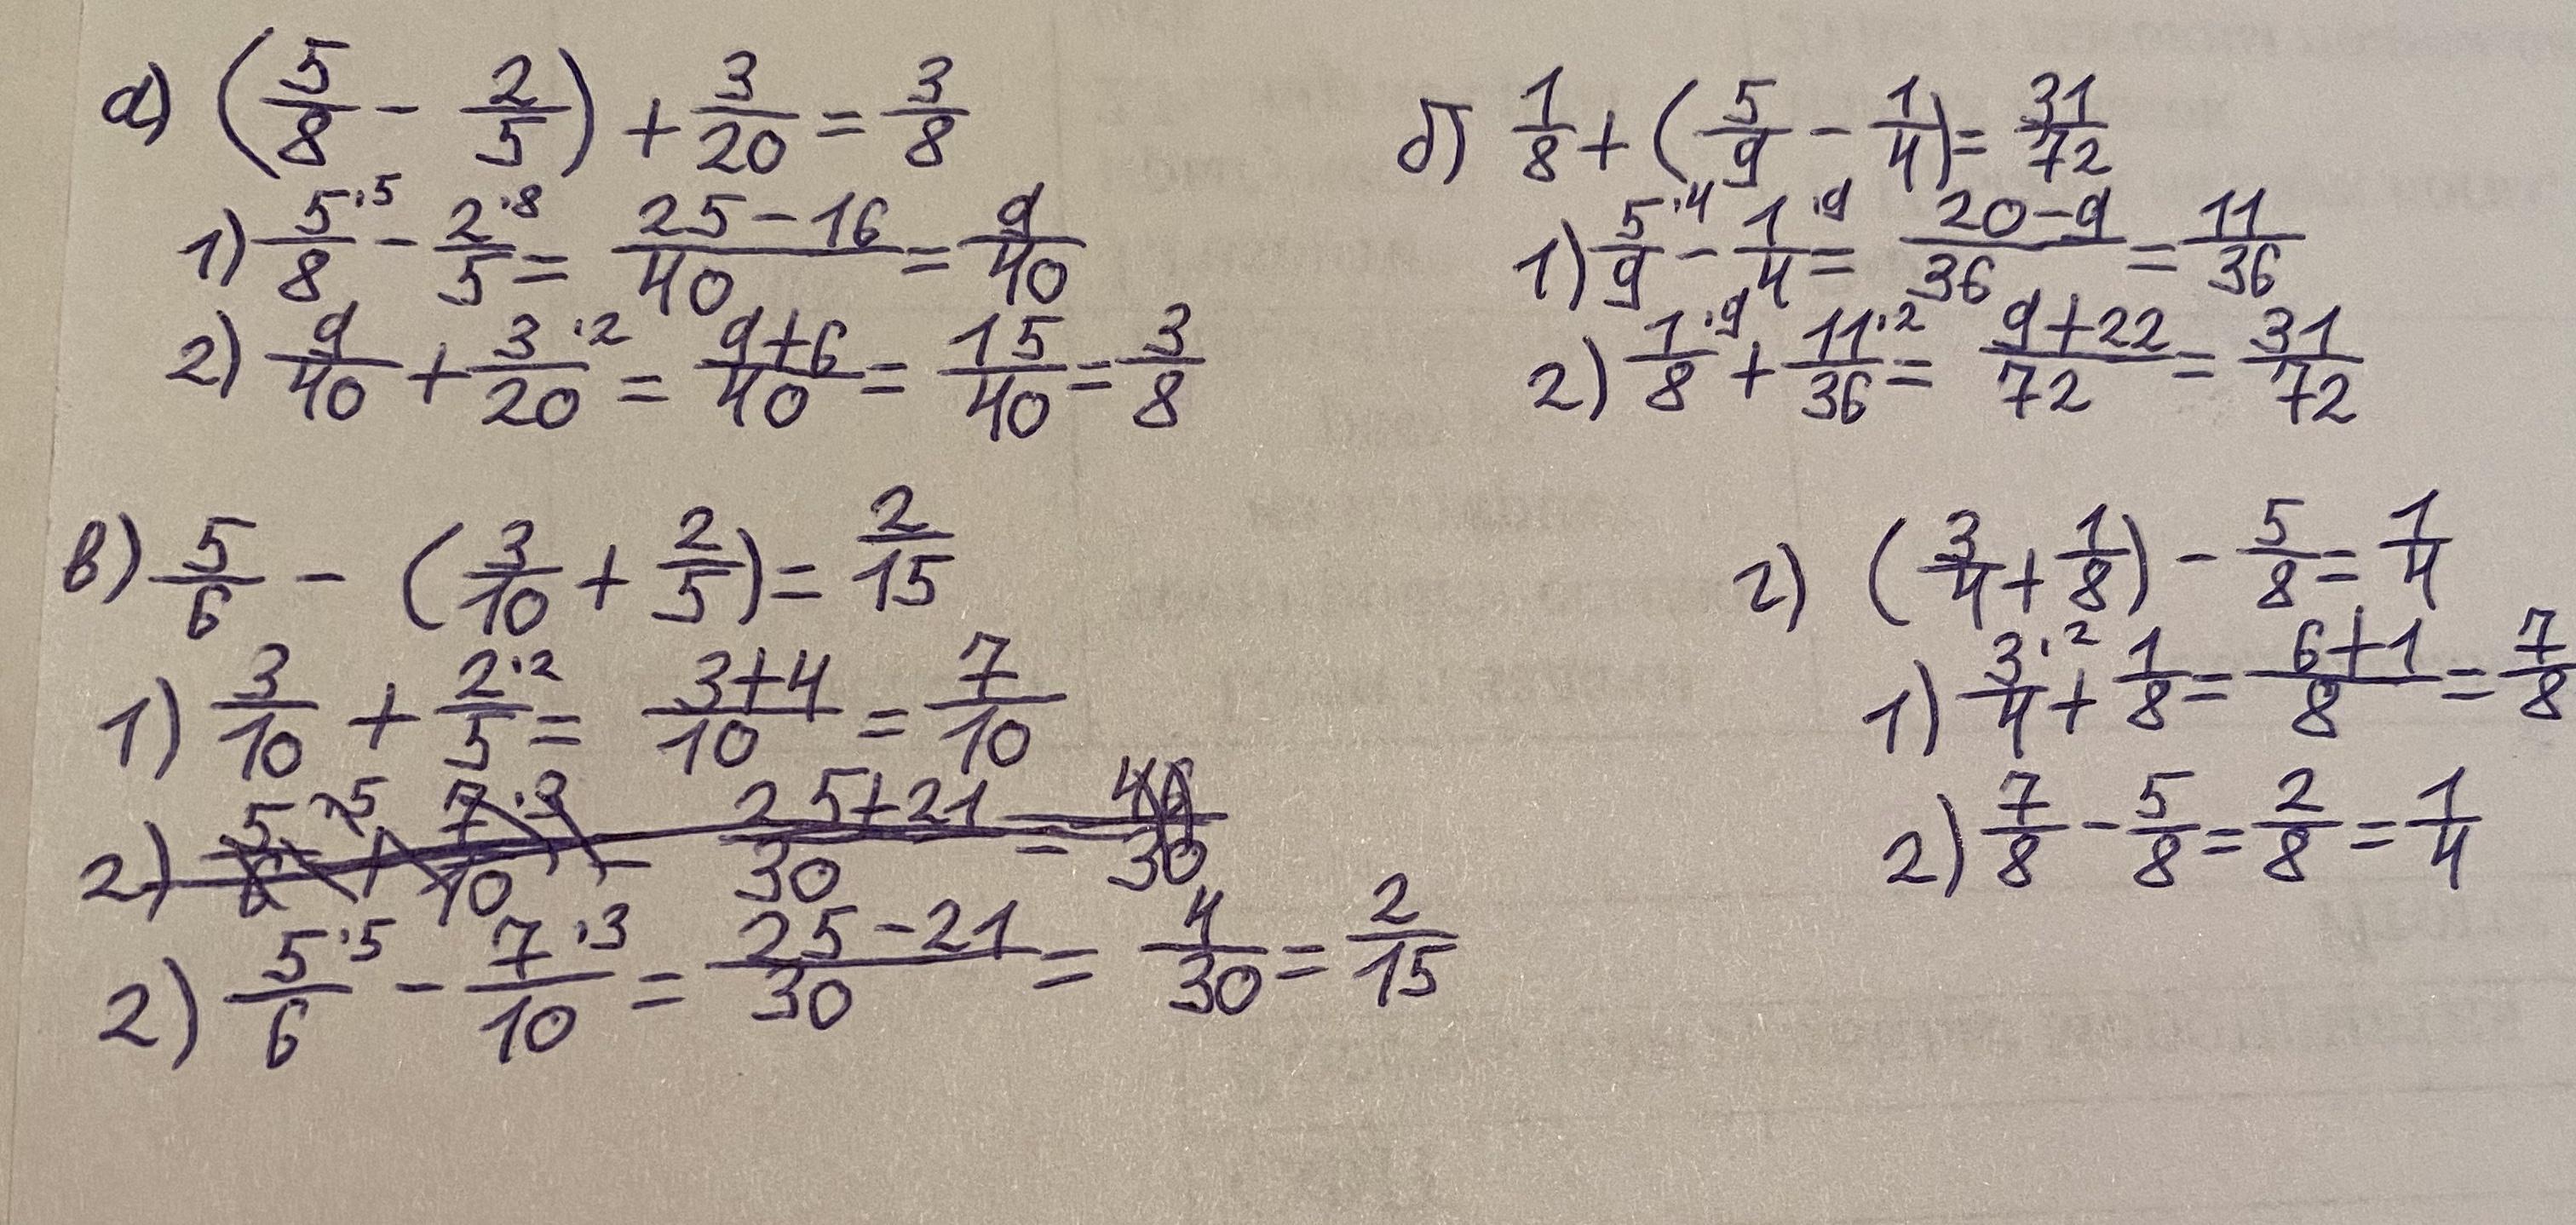 а) (5/8 - 2/5) + 3/20 = 3/8
1) 5/8 ·5 - 2/5 ·8 = 25-16/40 = 9/40
2) 9/40 + 3/20 ·2 = 9+6/40 = 15/40 = 3/8
б) 1/8 + (5/9 - 1/4) = 31/72
1) 5/9 ·4 - 1/4 ·9 = 20-9/36 = 11/36
2) 1/8 ·9 + 11/36 ·2 = 9+22/72 = 31/72
в) 5/6 - (3/10 + 2/5) = 2/15
1) 3/10 + 2/5 ·2 = 3+4/10 = 7/10
2) 5/6 ·5 + 7/10 ·3 = 25+21/30 = 46/30
2) 5/6 ·5 - 7/10 ·3 = 25-21/30 = 4/30 = 2/15
г) (3/4 + 1/8) - 5/8 = 1/4
1) 3/4 ·2 + 1/8 = 6+1/8 = 7/8
2) 7/8 - 5/8 = 2/8 = 1/4